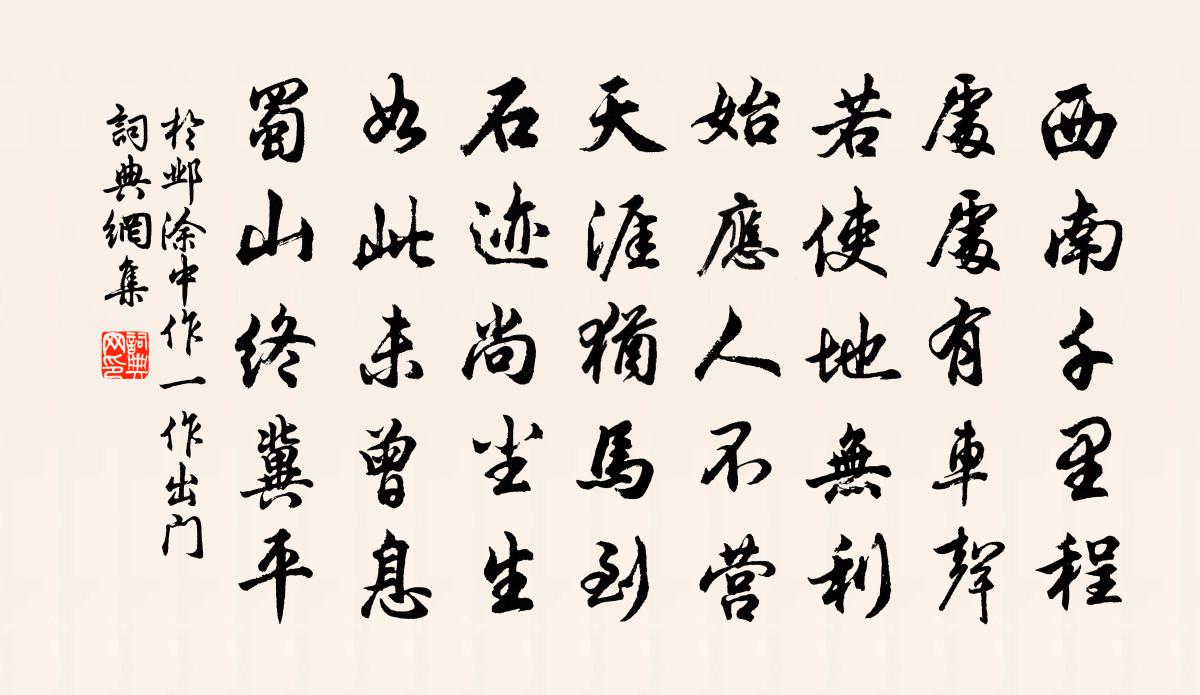 西南千里程
處處有車聲
若使地無利
始應人不营
天涯猶馬到
石迹尚尘生
如此未曾息
蜀山终冀平
於邺涂中作一作出门
詞典網集
詞典
网印